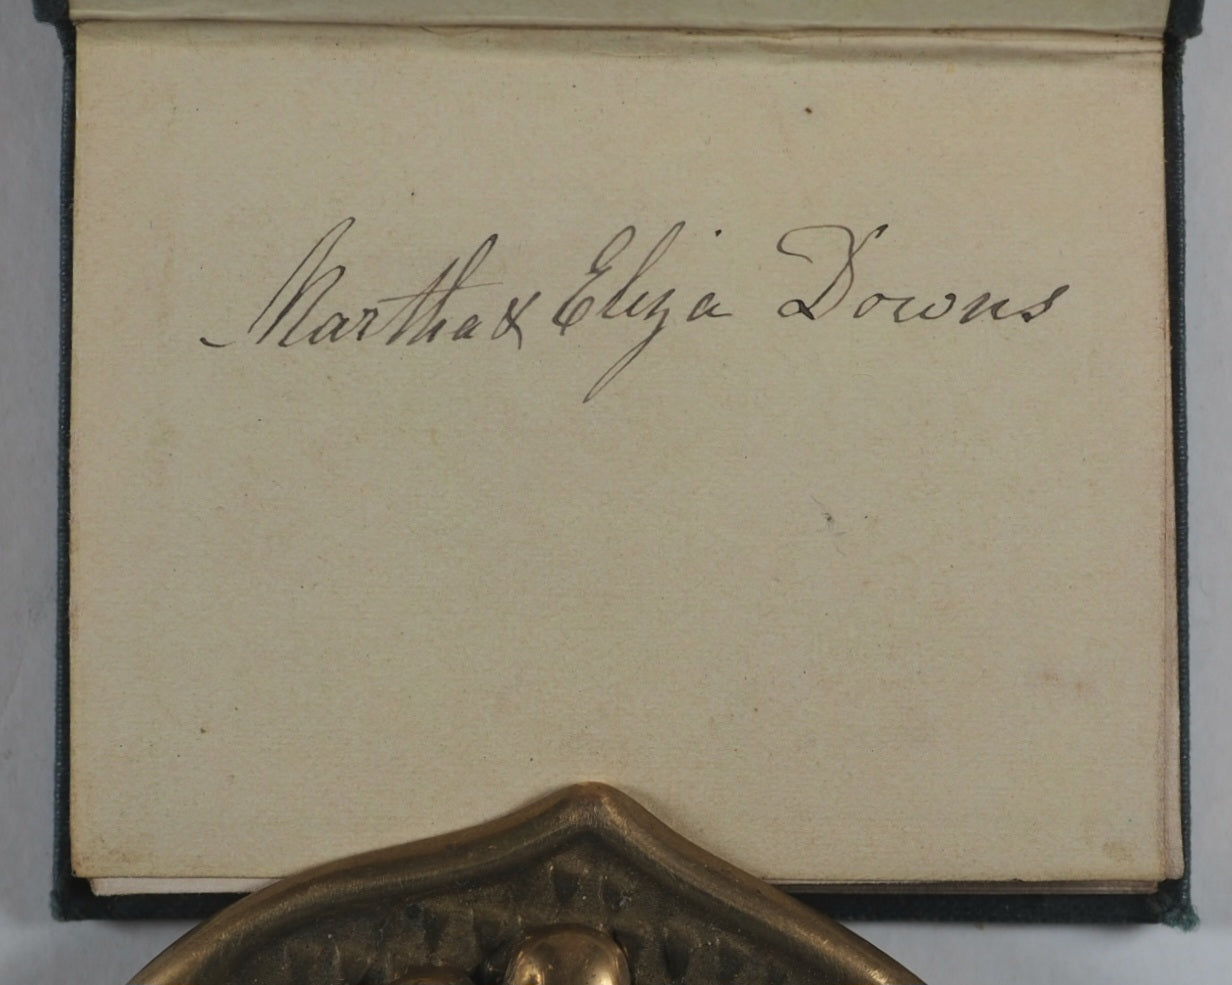 Martha & Eliza Downs